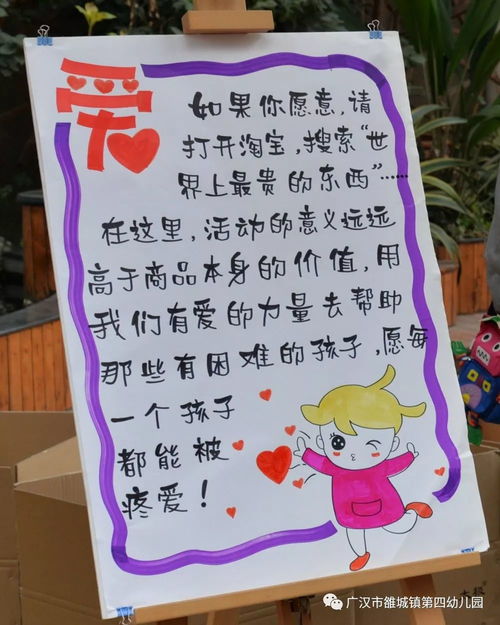 爱
如果你愿意,请
打开淘宝,搜索“世
界上最贵的东西”……
在这里,活动的意义远远
高于商品本身的价值,用
我们有爱的力量去帮助
那些有困难的孩子,愿每
一个孩子
都能被
疼爱!
广汉市雒城镇第四幼儿园